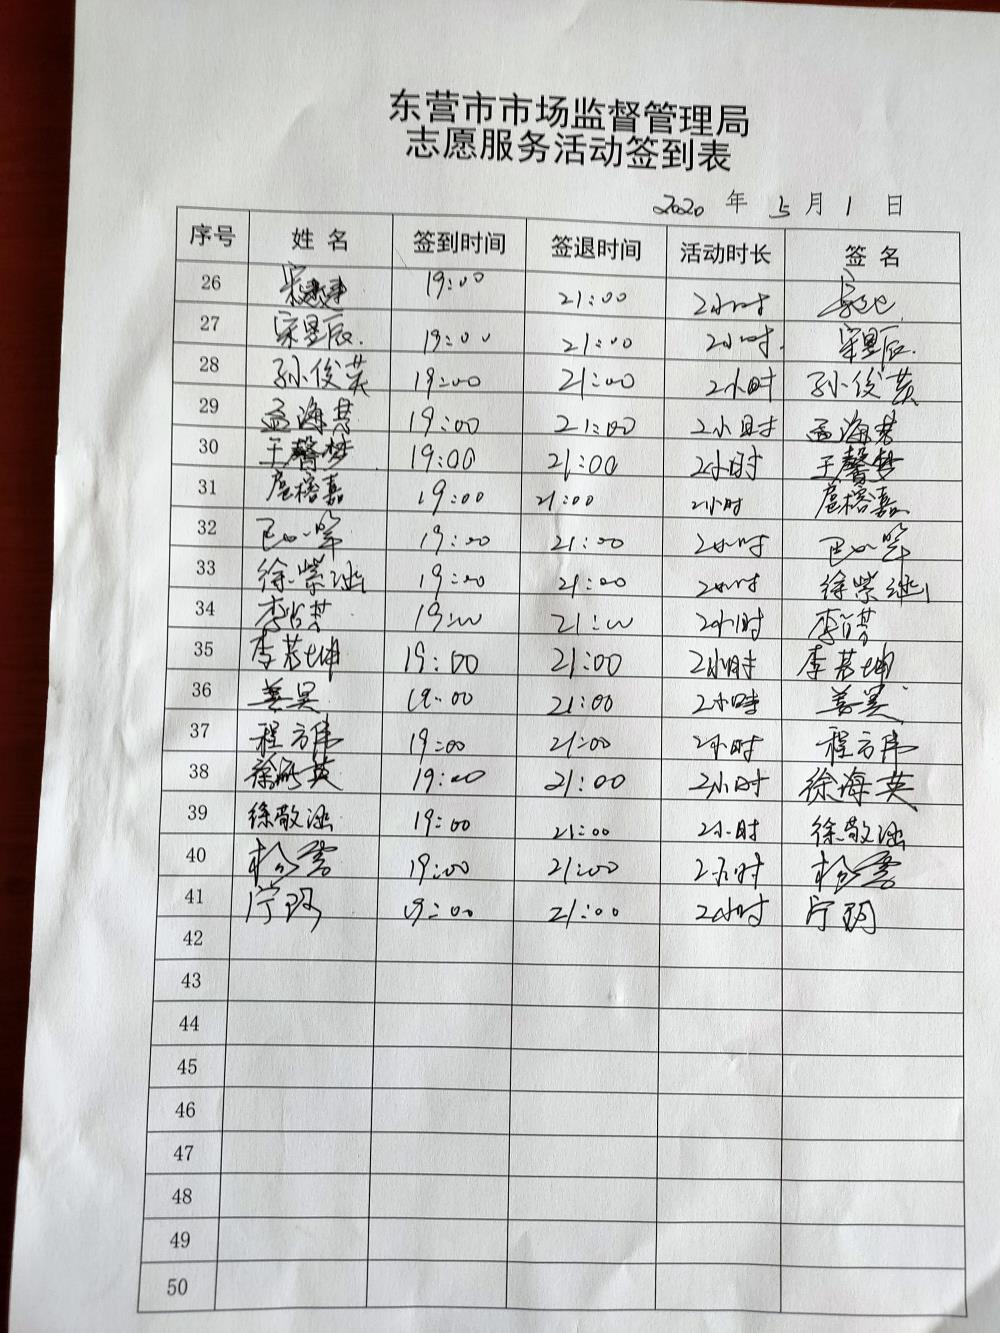 东营市市场监督管理局
志愿服务活动签到表
2020 年 5 月 1 日
序号 姓 名 签到时间 签退时间 活动时长 签 名
26 19:00 21:00 2小时
27 宋昱辰. 19:00 21:00 2小时. 宋昱辰.
28 孙俊英 19:00 21:00 2小时 孙俊英
29 孟海君 19:00 21:00 2小时 孟海君
30 王馨梦 19:00 21:00 2小时 王馨梦
31 扈榕嘉 19:00 21:00 2小时 扈榕嘉
32 19:00 21:00 2小时
33 徐崇涵 19:00 21:00 2小时 徐崇涵
34 19:00 21:00 2小时
35 李君坤 19:00 21:00 2小时 李君坤
36 姜昊 19:00 21:00 2小时 姜昊
37 程方伟 19:00 21:00 2小时 程方伟
38 徐海英 19:00 21:00 2小时 徐海英
39 徐敬涵 19:00 21:00 2小时 徐敬涵
40 19:00 21:00 2小时
41 宁玥 19:00 21:00 2小时 宁玥
42
43
44
45
46
47
48
49
50